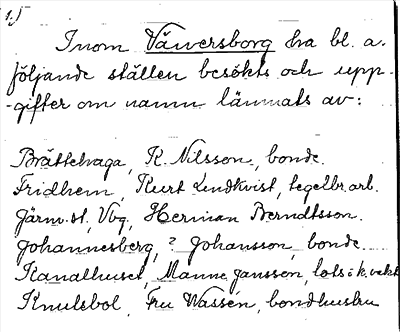 1.)
Inom Vänersborg ha bl. a.
följande ställen besökts och upp-
-gifter om namn lämnats av:
Brättehaga, K. Nilsson, bonde.
Fridhem, Kurt Lindkvist, tegelbr. arb.
Järnv. st, Vbg, Herman Berndtsson.
Johannesberg, ? Johansson, bonde.
Kanalhuset, Manne Jansson, lots i k. verket
Knulsbol, Fru Wassén, bondhustru